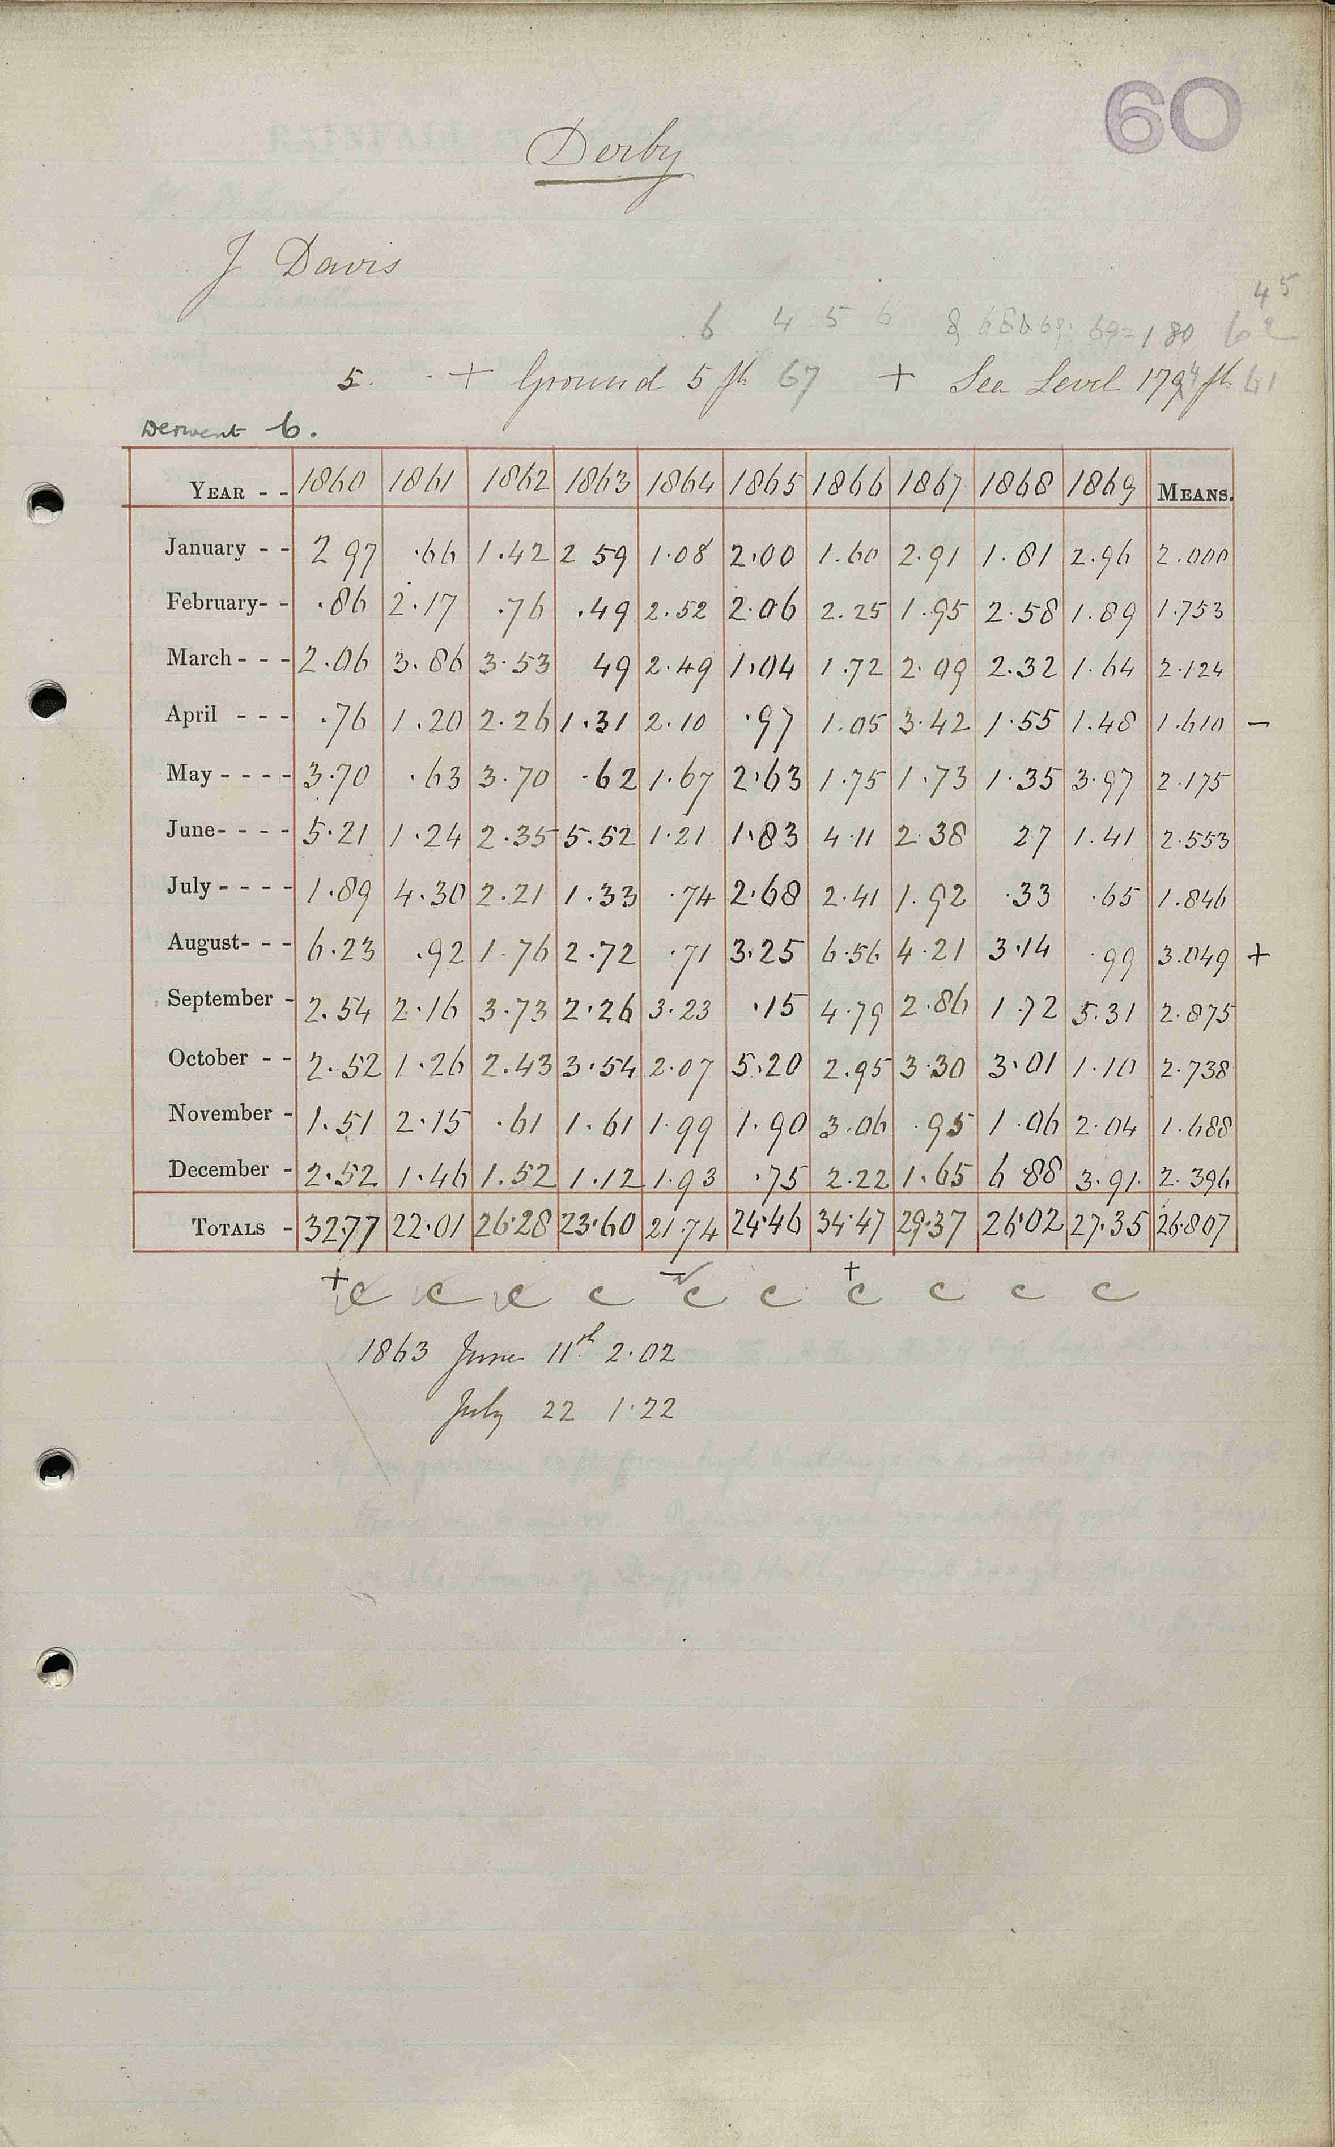 60
Derby
J Davis
45
6 4 5 6 & 68 & 69: 69=180 62
5. + Ground 5 ft 67 + Sea Level 174 ft 61
Derwent 6.
YEAR - - 1860 1861 1862 1863 1864 1865 1866 1867 1868 1869 MEANS.
January - - 2 97 .66 1.42 2 59 1.08 2.00 1.60 2.91 1.81 2.96 2.000
February- - .86 2.17 .76 .49 2.52 2.06 2.25 1.95 2.58 1.89 1.753
March - - - 2.06 3.86 3.53 49 2.49 1.04 1.72 2.09 2.32 1.64 2.124
April - - - .76 1.20 2.26 1.31 2.10 .97 1.05 3.42 1.55 1.48 1.610 -
May - - - - 3.70 .63 3.70 .62 1.67 2.63 1.75 1.73 1.35 3.97 2.175
June- - - - 5.21 1.24 2.35 5.52 1.21 1.83 4.11 2.38 27 1.41 2.553
July - - - - 1.89 4.30 2.21 1.33 .74 2.68 2.41 1.92 .33 .65 1.846
August- - - 6.23 .92 1.76 2.72 .71 3.25 6.56 4.21 3.14 .99 3.049 +
September - 2.54 2.16 3.73 2.26 3.23 .15 4.79 2.86 1.72 5.31 2.875
October - - 2.52 1.26 2.43 3.54 2.07 5.20 2.95 3.30 3.01 1.10 2.738
November - 1.51 2.15 .61 1.61 1.99 1.90 3.06 .95 1.06 2.04 1.688
December - 2.52 1.46 1.52 1.12 1.93 .75 2.22 1.65 6 88 3.91. 2.396
TOTALS - 32.77 22.01 26.28 23.60 21.74 24.46 34.47 29.37 26.02 27.35 26.807
+ c c c c - c c + c c c c
1863 June 11th 2.02
July 22 1.22